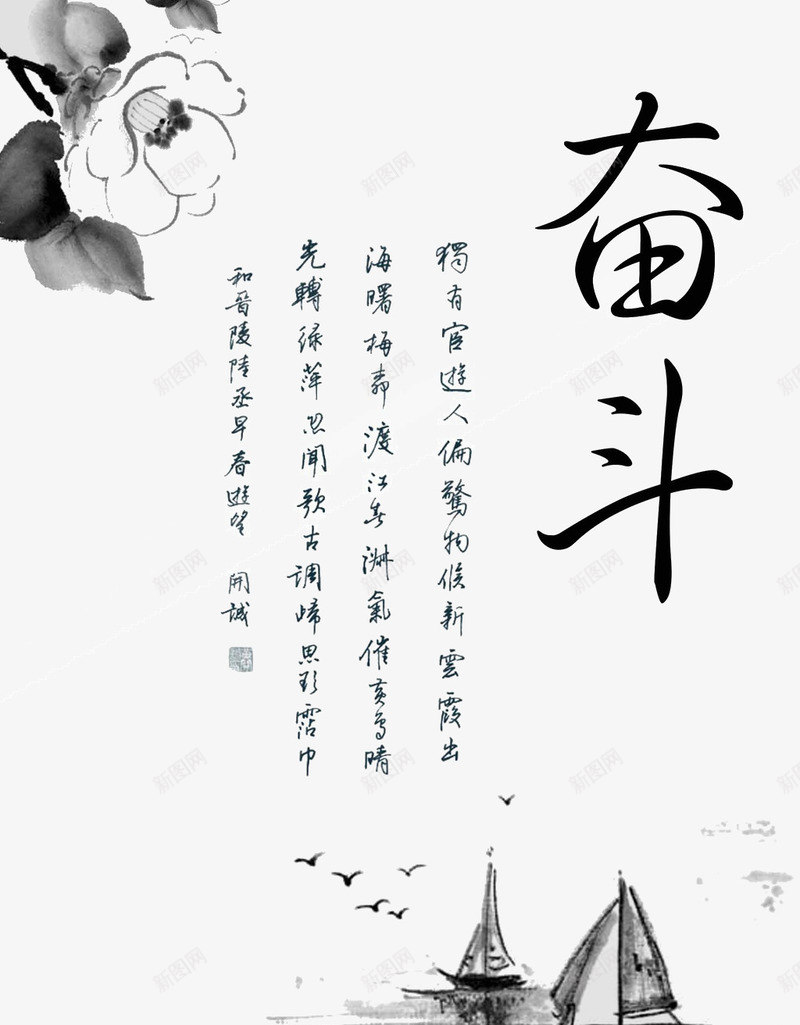 奋斗
獨有宦遊人偏驚物候新雲霞出
海曙梅柳渡江春淑氣催黃鳥晴
光轉綠萍忽聞歌古調歸思欲霑巾
和晉陵陸丞早春遊望 開誠
新图网